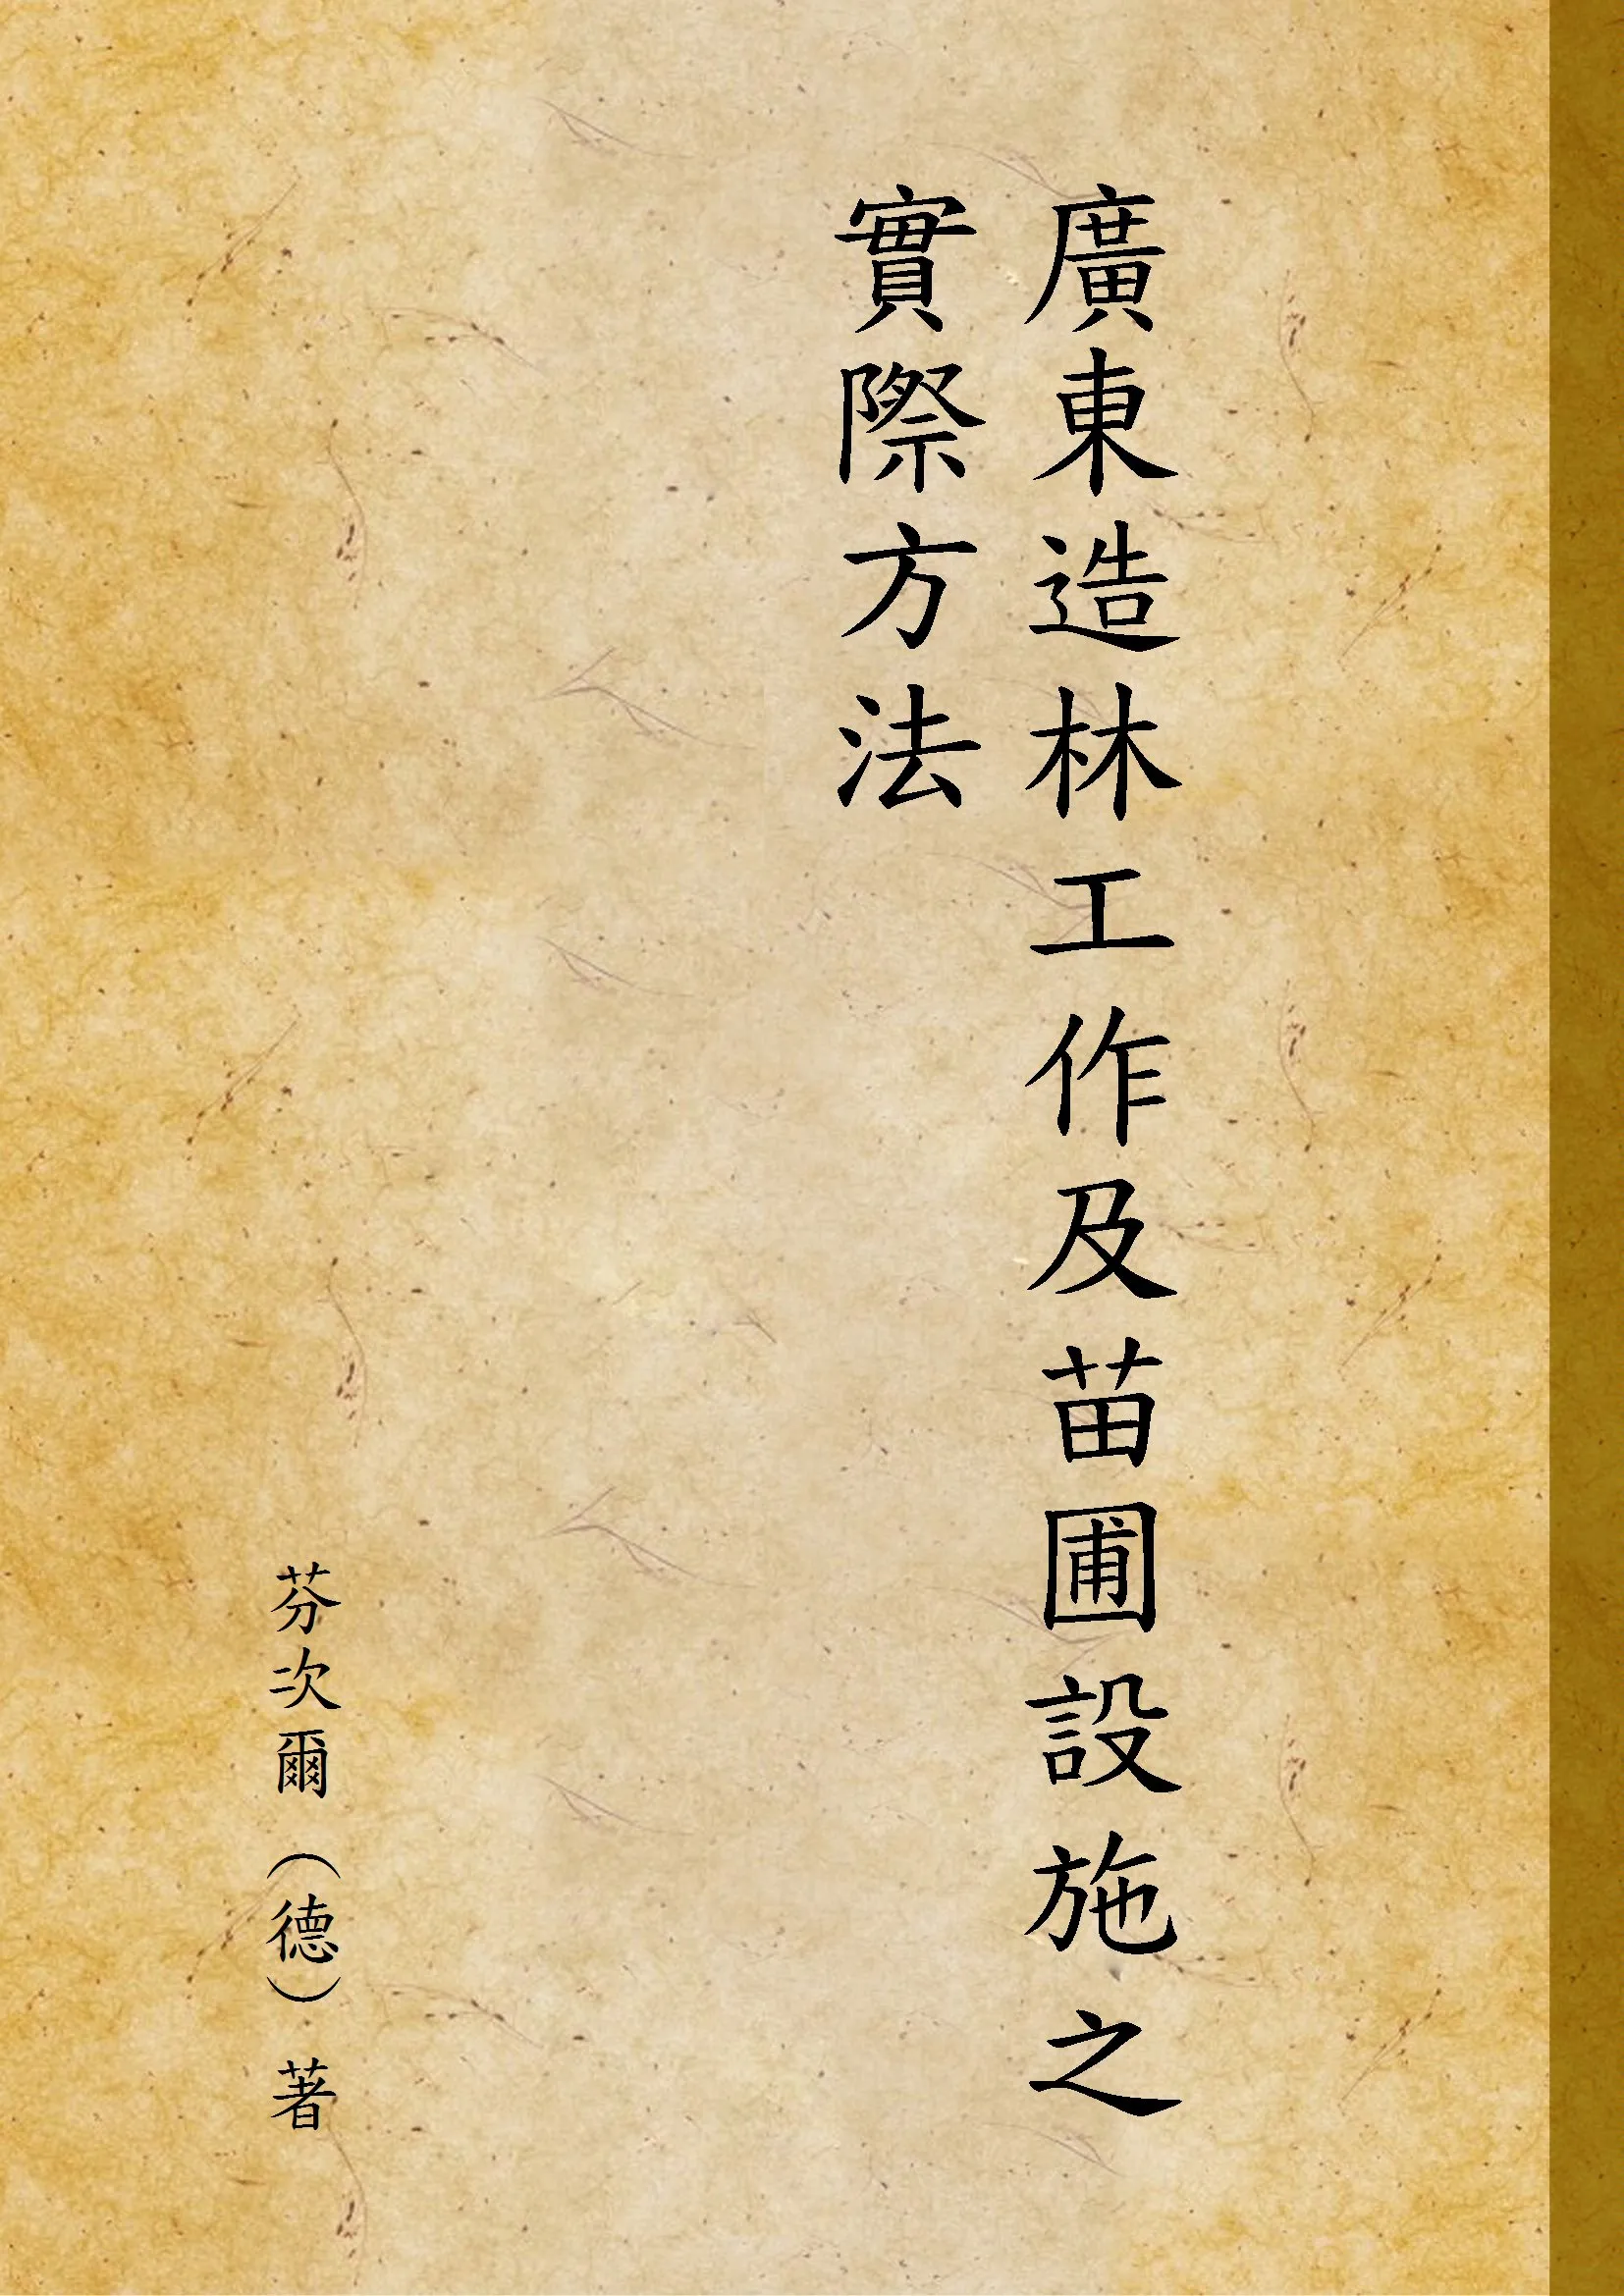 廣東造林工作及苗圃設施之
實際方法
芬次爾（德）著